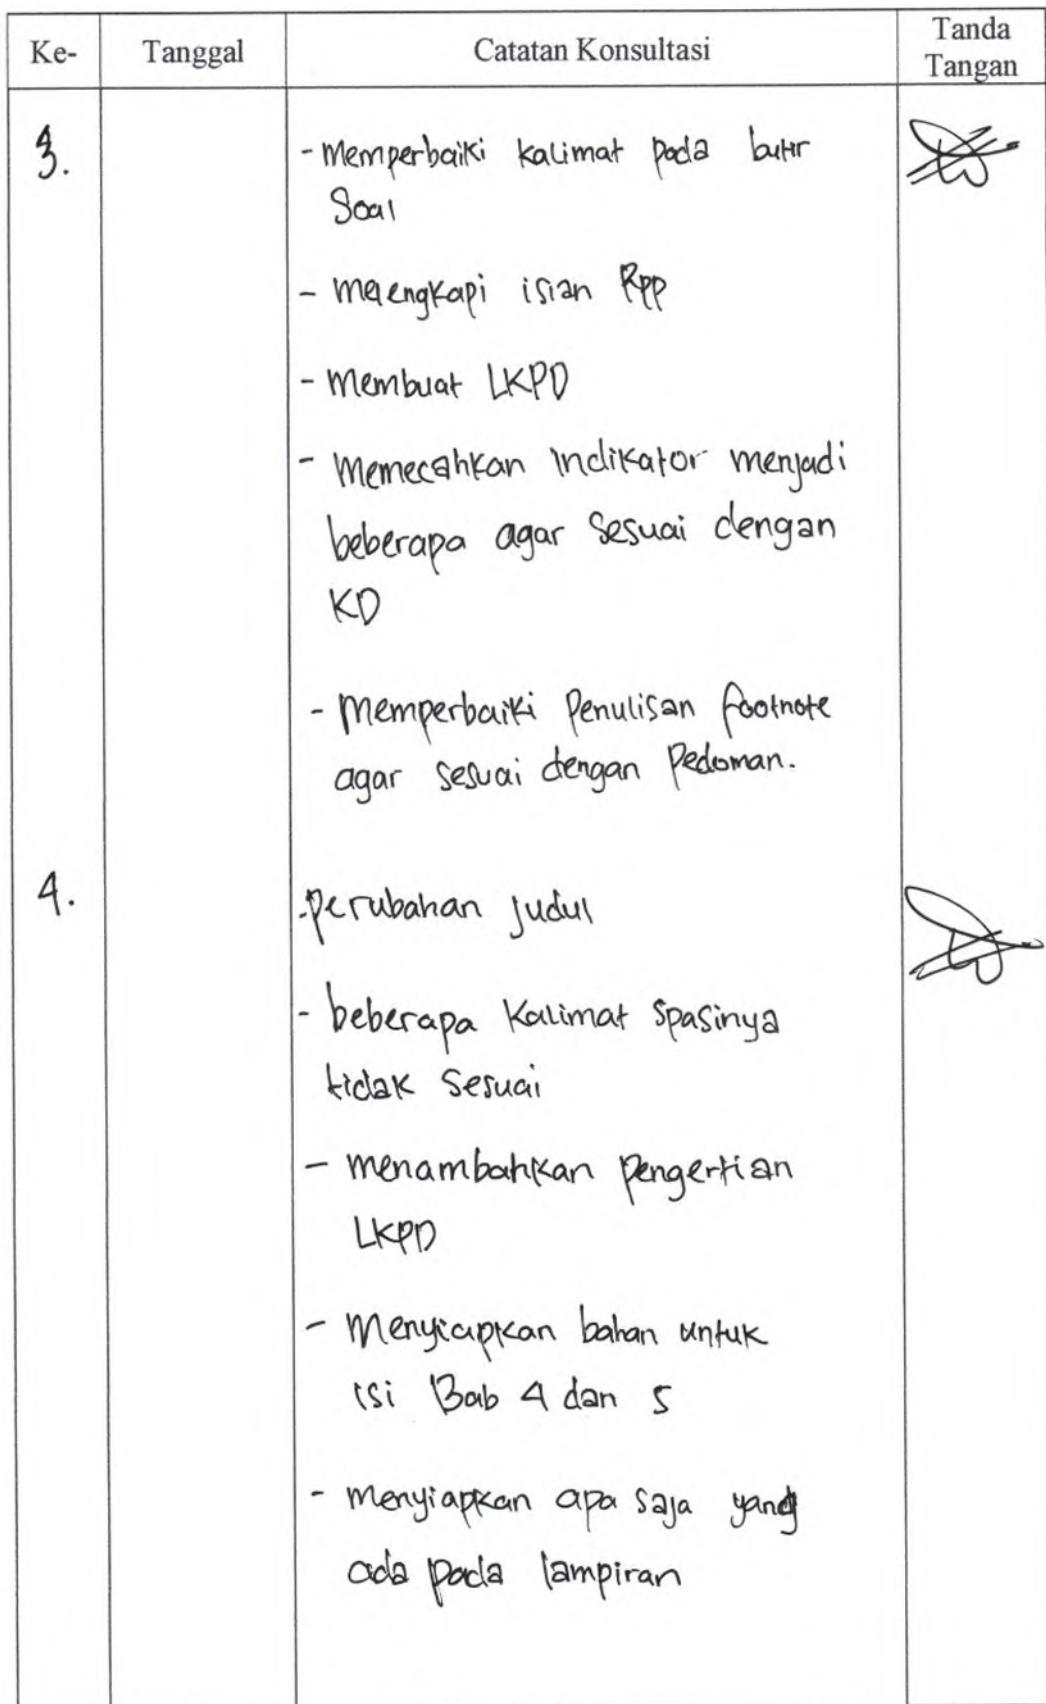 Ke- Tanggal Catatan Konsultasi Tanda Tangan
3. - Memperbaiki kalimat pada butir
Soal
- melengkapi isian RPP
- Membuat LKPD
- Memecahkan indikator menjadi
beberapa agar sesuai dengan
KD
- Memperbaiki Penulisan footnote
agar sesuai dengan Pedoman.
4. - perubahan judul
- beberapa kalimat spasinya
tidak sesuai
- menambahkan pengertian
LKPD
- Menyiapkan bahan untuk
isi Bab 4 dan 5
- menyiapkan apa saja yang
ada pada lampiran